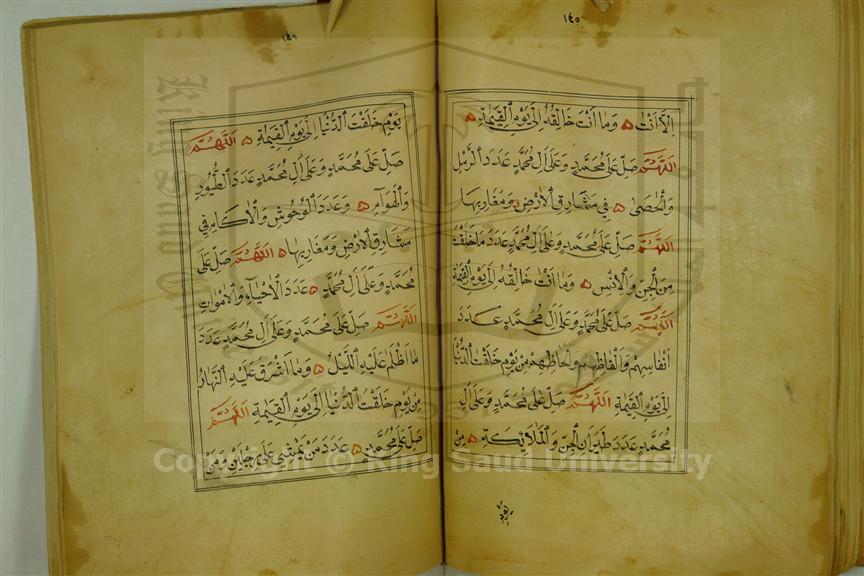 ١٤٥
اِلَّا اَنْتَ ۞ وَمَا اَنْتَ خَالِقُهُ اِلٰى يَوْمِ الْقِيٰمَةِ ۞
اَللّٰهُمَّ صَلِّ عَلٰى مُحَمَّدٍ وَعَلٰى اٰلِ مُحَمَّدٍ عَدَدَ الرَّمْلِ
وَالْحَصٰى ۞ فِي مَشَارِقِ الْاَرْضِ وَمَغَارِبِهَا
اَللّٰهُمَّ صَلِّ عَلٰى مُحَمَّدٍ وَعَلٰى اٰلِ مُحَمَّدٍ عَدَدَ مَا خَلَقْتَ
مِنَ الْجِنِّ وَالْاِنْسِ ۞ وَمَا اَنْتَ خَالِقُهُ اِلٰى يَوْمِ الْقِيٰمَةِ
اَللّٰهُمَّ صَلِّ عَلٰى مُحَمَّدٍ وَعَلٰى اٰلِ مُحَمَّدٍ عَدَدَ
اَنْفَاسِهِمْ وَاَلْفَاظِهِمْ وَاَلْحَاظِهِمْ مِنْ يَوْمِ خَلَقْتَ الدُّنْيَا
اِلٰى يَوْمِ الْقِيٰمَةِ اَللّٰهُمَّ صَلِّ عَلٰى مُحَمَّدٍ وَعَلٰى اٰلِ
مُحَمَّدٍ عَدَدَ طَيَرَانِ الْجِنِّ وَالْمَلَائِكَةِ ۞ مِنْ
يَوْمِ
يَوْمِ خَلَقْتَ الدُّنْيَا اِلٰى يَوْمِ الْقِيٰمَةِ ۞ اَللّٰهُمَّ
صَلِّ عَلٰى مُحَمَّدٍ وَعَلٰى اٰلِ مُحَمَّدٍ عَدَدَ الطُّيُورِ
وَالْهَوَامِّ ۞ وَعَدَدَ الْوُحُوشِ وَالْاٰكَامِ فِي
مَشَارِقِ الْاَرْضِ وَمَغَارِبِهَا ۞ اَللّٰهُمَّ صَلِّ عَلٰى
مُحَمَّدٍ وَعَلٰى اٰلِ مُحَمَّدٍ ۞ عَدَدَ الْاَحْيَاءِ وَالْاَمْوَاتِ
اَللّٰهُمَّ صَلِّ عَلٰى مُحَمَّدٍ وَعَلٰى اٰلِ مُحَمَّدٍ عَدَدَ
مَا اَظْلَمَ عَلَيْهِ اللَّيْلُ ۞ وَمَا اَشْرَقَ عَلَيْهِ النَّهَارُ
مِنْ يَوْمِ خَلَقْتَ الدُّنْيَا اِلٰى يَوْمِ الْقِيٰمَةِ اَللّٰهُمَّ
صَلِّ عَلٰى مُحَمَّدٍ ۞ عَدَدَ مَنْ يَمْشِي عَلٰى رِجْلَيْنِ وَمَنْ
Copyright © King Saud University